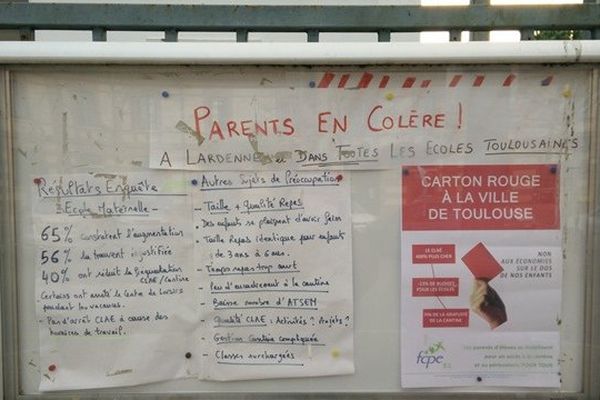 PARENTS EN COLÈRE !
A LARDENNE DANS TOUTES LES ECOLES TOULOUSAINES
Résultats Enquête
Ecole Maternelle -
65% constatent l'augmentation
56% la trouvent injustifiée
40% ont réduit la fréquentation
CLAE / Cantine
Certains ont arrêté le Centre de Loisirs
pendant les vacances.
- Pas d'arrêt CLAE à cause des
horaires de travail.
Autres Sujets de Préoccupation
- Taille + Qualité Repas
- Des enfants se plaignent d'avoir faim
- Taille Repas identique pour enfants
de 3 ans à 6 ans.
- Temps repas trop court
- Peu d'encadrement à la cantine
- Baisse nombre d'ATSEM
- Qualité CLAE : Activités ? Projets ?
- Gestion Cantine compliquée
- Classes surchargées
CARTON ROUGE
À LA VILLE
DE TOULOUSE
LE CLAÉ
PLUS CHER
NON
AUX ÉCONOMIES
SUR LE DOS
DE NOS ENFANTS
DE BUDGET
POUR LES ÉCOLES
FIN DE LA GRATUITÉ
DE LA CANTINE
fcpe
Les parents d'élèves se mobilisent
pour un accès à la cantine
et au périscolaire POUR TOUS